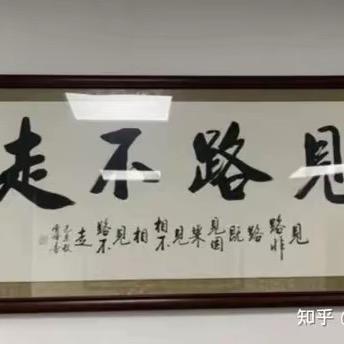 見路不走
見路非路既見因果見相不相見路不走
知乎 @